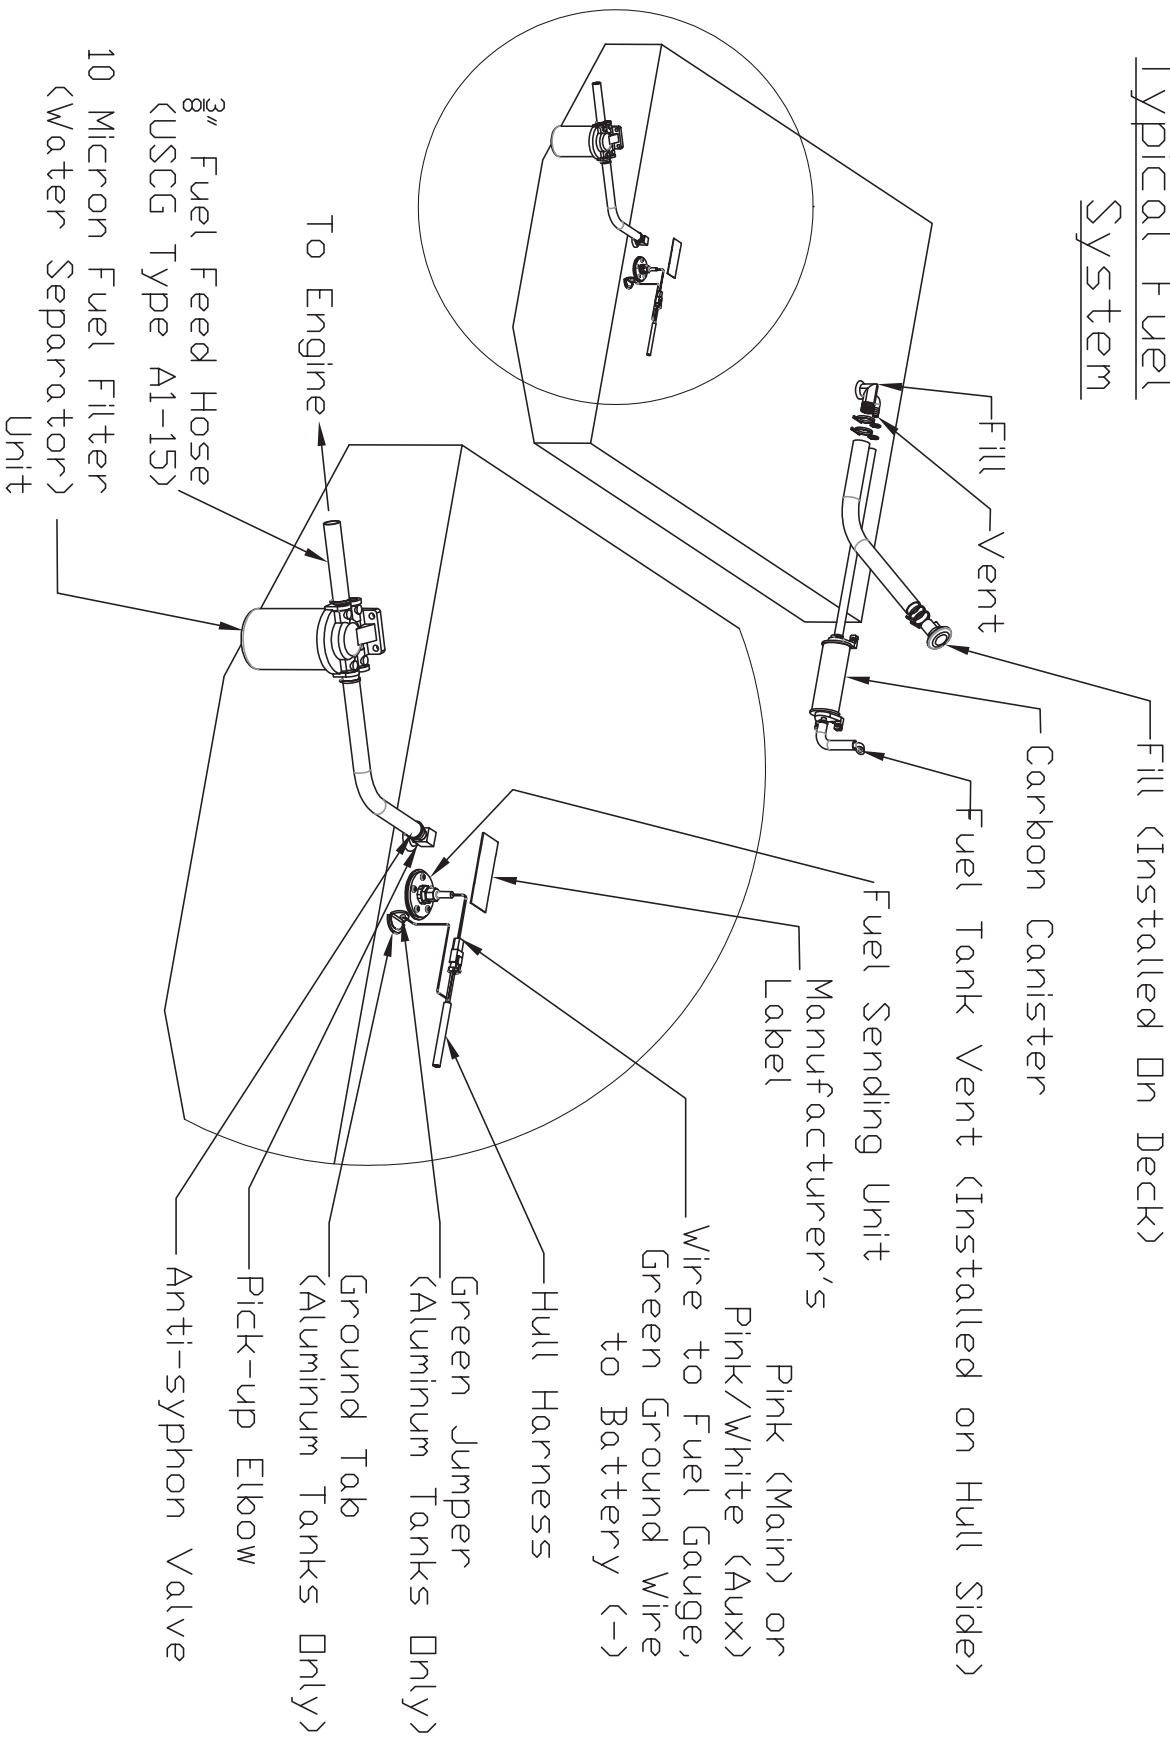 Typical Fuel
System
Fill (Installed On Deck)
Carbon Canister
Fuel Tank Vent (Installed on Hull Side)
Fill
Vent
Fuel Sending Unit
Manufacturer's
Label
Pink (Main) or
Pink/White (Aux)
Wire to Fuel Gauge,
Green Ground Wire
to Battery (-)
Hull Harness
Green Jumper
(Aluminum Tanks Only)
Ground Tab
(Aluminum Tanks Only)
Pick-up Elbow
Anti-syphon Valve
To Engine
⅜" Fuel Feed Hose
(USCG Type A1-15)
10 Micron Fuel Filter
(Water Separator)
Unit